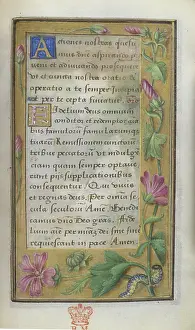 Actiones nostras quesu
mus dñe aspirando pre
ueni et adiuuando prosequere
ut et cuncta nostra oratio et
operatio a te semper incipiat
et per te cepta finiatur
Fidelium deus omnium
conditor et redemptor anima
bus famulorum famularumque
tuarum Remissionem cunctorum
tribue peccatorum vt indulgen
ciam quam semper optaue
runt piis supplicationibus
consequantur Qui viuis
et regnis deus. Per omnia
secula seculorum Ame Benedi
camus dño Deo gras. Fide
lium aie per miam dei sine fine
requiescant in pace Amen